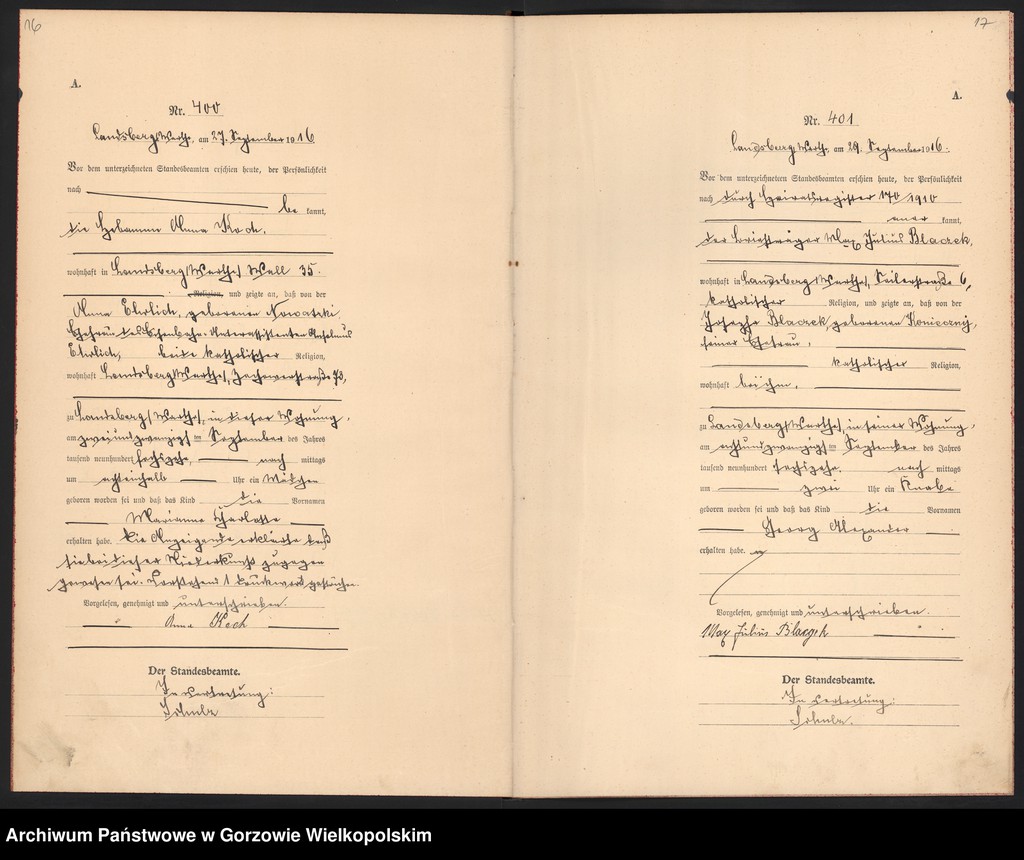 16
A.
Nr. 400
Landsberg/Warthe, am 27. September 1916
Vor dem unterzeichneten Standesbeamten erschien heute, der Persönlichkeit
nach
be kannt,
die Hebamme Anna Koch,
wohnhaft in Landsberg/Warthe, Wall 35.
Religion, und zeigte an, daß von der
Anna Ehrlich, geborenen Nowatzki
Ehefrau des Eisenbahn-Unterassistenten
Ehrlich, beide katholischer Religion,
wohnhaft Landsberg/Warthe,
zu Landsberg/Warthe, in dieser Wohnung,
am zweiundzwanzigsten September des Jahres
tausend neunhundert sechszehn, nach mittags
um achteinhalb Uhr ein Mädchen
geboren worden sei und daß das Kind die Vornamen
Marianne Charlotte
erhalten habe. Die Anzeigende erklärte daß
sie bei dieser Niederkunft zugegen
gewesen sei. Vorstehend 1 Druckwort gestrichen.
Vorgelesen, genehmigt und unterschrieben.
Anna Koch
Der Standesbeamte.
In Vertretung:
Schulz
17
A.
Nr. 401
Landsberg/Warthe, am 29. September 1916.
Vor dem unterzeichneten Standesbeamten erschien heute, der Persönlichkeit
nach durch Heiratsregister 170/1910
aner kannt,
der Briefträger Max Julius Blaczek,
wohnhaft in Landsberg/Warthe, Seilerstraße 6,
katholischer Religion, und zeigte an, daß von der
Josepha Blaczek, geborenen Konieczny,
seiner Ehefrau,
katholischer Religion,
wohnhaft bei ihm,
zu Landsberg/Warthe, in seiner Wohnung,
am achtundzwanzigsten September des Jahres
tausend neunhundert sechszehn, nach mittags
um zwei Uhr ein Knabe
geboren worden sei und daß das Kind die Vornamen
Georg Alexander
erhalten habe.
Vorgelesen, genehmigt und unterschrieben.
Max Julius Blaczek
Der Standesbeamte.
In Vertretung:
Schulz.
Archiwum Państwowe w Gorzowie Wielkopolskim